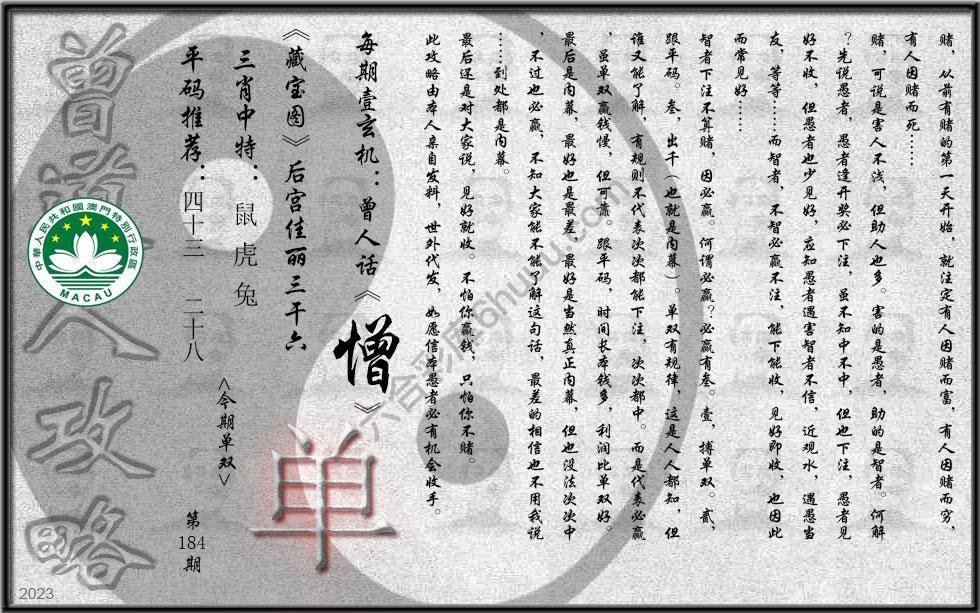 赌，从前有赌的第一天开始，就注定有人因赌而富，有人因赌而穷，
有人因赌而死……
赌，可说是害人不浅，但助人也多。害的是愚者，助的是智者。何解
？先说愚者，愚者逢开奖必下注，虽不知中不中，但也下注，愚者见
好不收，但愚者也少见好，应知愚者遇害智者不信，近观水，遇愚当
友，等等……而智者，不智必赢不注，能下能收，见好即收，也因此
而常见好……
智者下注不算赌，因必赢。何谓必赢？必赢有叁。壹，搏单双。贰，
跟平码。叁，出千（也就是内幕）。单双有规律，这是人人都知，但
谁又能了解，有规则不代表次次都能下注，次次都中。而是代表必赢
，虽单双赢钱慢，但可靠。跟平码，时间长本钱多，利润比单双好。
最后是内幕，最好也是最差，最好是当然真正内幕，但也没法次次中
，不过也必赢，不知大家能不能了解这句话，最差的相信也不用我说
……到处都是内幕。
最后还是对大家说，见好就收。不怕你赢钱，只怕你不赌。
此攻略由本人亲自发料，世外代发，如愿信本愚者必有机会收手。
每期壹玄机：曾人话《憎》
《藏宝图》后宫佳丽三千六
三肖中特：鼠虎兔
平码推荐：四十三 二十八
<今期单双>
单
第184期
曾道人攻略
中華人民共和國澳門特別行政區
MACAU
六合彩库6huhu.com
2023